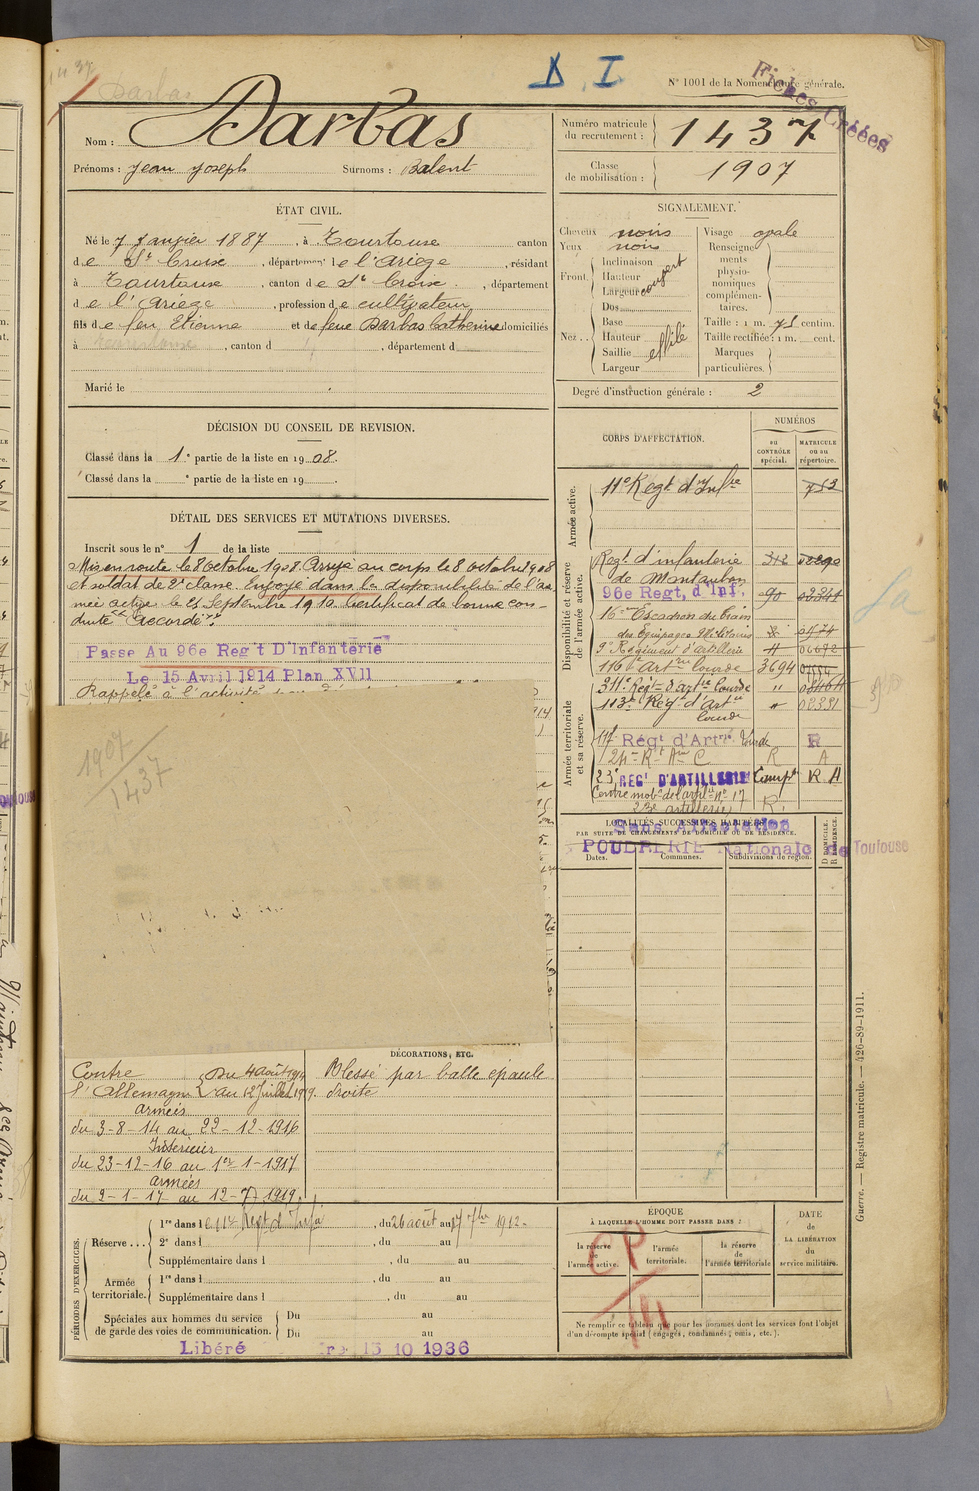 1437
Darbas
D. I
N° 1001 de la Nomenclature générale.
Fiches Créées
Nom : Darbas
Prénoms : Jean Joseph Surnoms : Balent
Numéro matricule du recrutement : 1437
Classe de mobilisation : 1907
ÉTAT CIVIL.
Né le 7 Janvier 1887, à Tourtouse canton
de Ste Croise, département de l'Ariège, résidant
à Tourtouse, canton de Ste Croise, département
de l'Ariège, profession de cultivateur
fils de feu Etienne et de feue Darbas Catherine domiciliés
à Tourtouse, canton d , département d
Marié le
SIGNALEMENT.
Cheveux noirs
Yeux noirs
Front. Inclinaison
Hauteur
Largeur couvert
Nez . . Dos
Base
Hauteur
Saillie effilé
Largeur
Visage ovale
Renseignements physionomiques complémentaires.
Taille : 1 m. 75 centim.
Taille rectifiée : 1 m. cent.
Marques particulières.
Degré d'instruction générale : 2
DÉCISION DU CONSEIL DE REVISION.
Classé dans la 1e partie de la liste en 1908.
Classé dans la e partie de la liste en 19 .
DÉTAIL DES SERVICES ET MUTATIONS DIVERSES.
Inscrit sous le n° 1 de la liste
Mis en route le 8 Octobre 1908. Arrivé au corps le 8 octobre 1908
et soldat de 2e classe. Envoyé dans la disponibilité de l'ar
mée active le 25 Septembre 1910. Certificat de bonne con-
duite "Accordé"
Passé Au 96e Reg't D'Infanterie
Le 15 Avril 1914 Plan XVII
Rappelé à l'activité
1907
1437
CORPS D'AFFECTATION.
NUMÉROS
au CONTRÔLE spécial.
MATRICULE ou au répertoire.
Armée active.
11e Régt d'Infie 752
Disponibilité et réserve de l'armée active.
Regt d'infanterie
de Montauban
96e Regt, d'Inf. 90
16me Escadron du Train
des Equipages Militaires
9e Régiment d'artillerie
116e d'artie lourde 3694
Armée territoriale et sa réserve.
311e Régt d'artie lourde "
113e Rég. d'Artie lourde "
117e Régt d'Artie lourde R
124me Rt Ame C R A
23e REGt D'ARTILLERIE Compt R A
Centre mobe de l'artie n° 17
23e artillerie R.
LOCALITÉS SUCCESSIVES HABITÉES
PAR SUITE DE CHANGEMENTS DE DOMICILE OU DE RÉSIDENCE.
Sans Affectation
POUDRERIE Nationale de Toulouse
Dates. Communes. Subdivisions de région. D DOMICILE. R RÉSIDENCE.
DÉCORATIONS, ETC.
Contre l'Allemagne { Du 4 août 1914 au 12 Juillet 1919.
armées
du 3-8-14 au 22-12-1916
Intérieur
du 23-12-16 au 1er 1-1917
armées
du 2-1-17 au 12-7-1919.
Blessé par balle épaule
droite
PÉRIODES D'EXERCICES.
Réserve . . . 1re dans le 11e Régt d'Infie, du 26 août au 17 7bre 1912.
2e dans l , du au
Supplémentaire dans l , du au
Armée territoriale. 1re dans l , du au
Supplémentaire dans l , du au
Spéciales aux hommes du service de garde des voies de communication. Du au
Du au
Libéré 15 10 1936
ÉPOQUE
À LAQUELLE L'HOMME DOIT PASSER DANS :
la réserve de l'armée active.
l'armée territoriale.
la réserve de l'armée territoriale
DATE de LA LIBÉRATION du service militaire.
CP
Ne remplir ce tableau que pour les hommes dont les services font l'objet
d'un décompte spécial (engagés, condamnés, omis, etc.).
Guerre. — Registre matricule. — 426-89-1911.